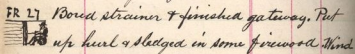 FR 27 Bored strainer & finished gateway. Put
up hurl & sledged in some firewood Wind